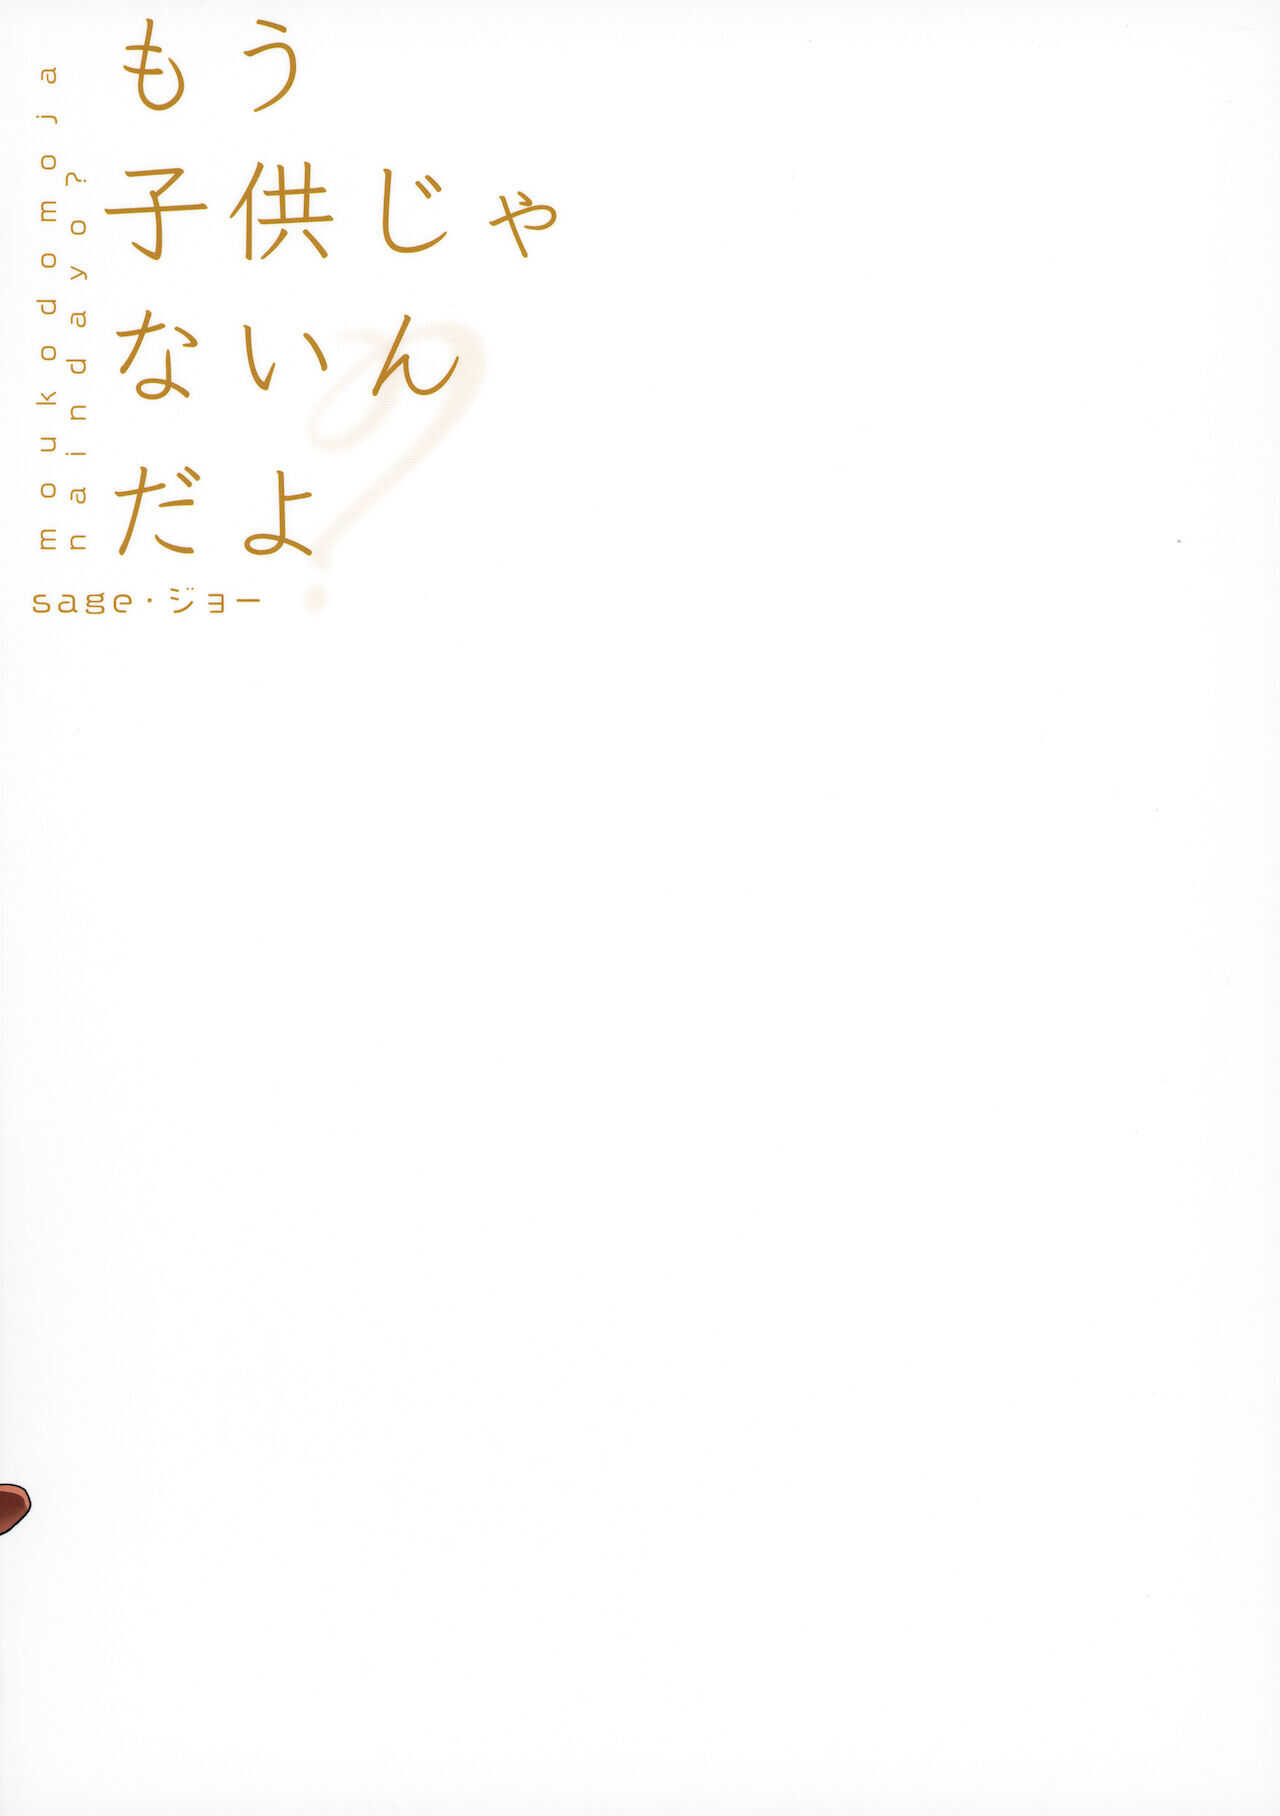 もう
子供じゃ
ないん
だよ
?
moukodomoja
naindayo?
sage・ジョー